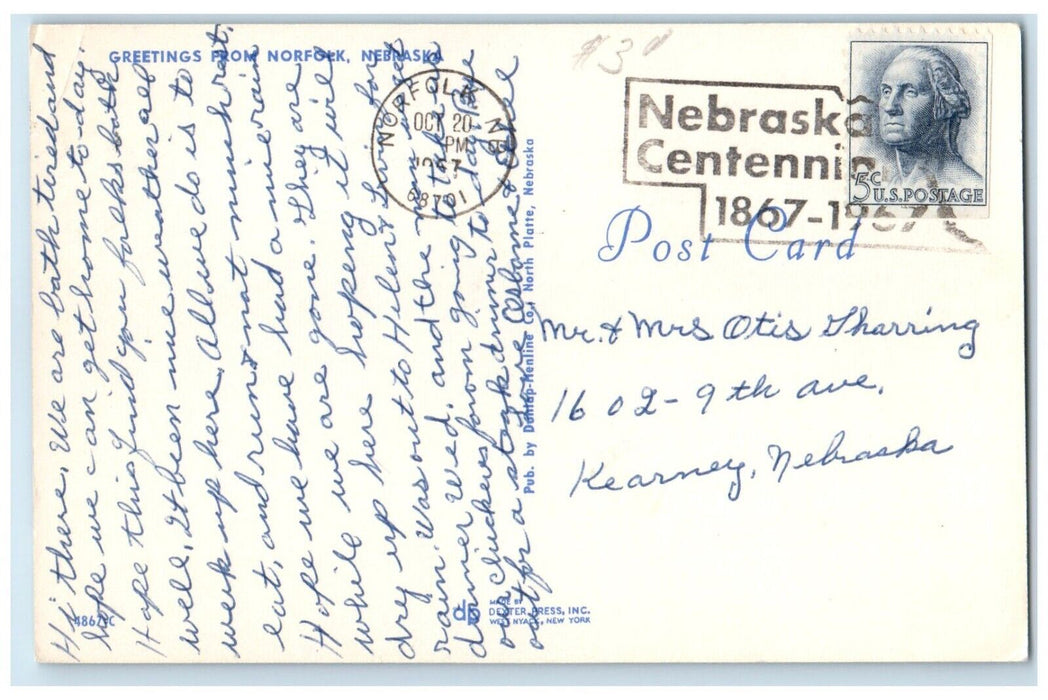 GREETINGS FROM NORFOLK, NEBRASKA
$3
NORFOLK NEBR
OCT 20
PM
1967
68701
Nebraska
Centennial
1867-1967
5¢
U.S. POSTAGE
Post Card
Mr. & Mrs Otis Tharring
1602-9th ave.
Kearney, Nebraska
Hi there. We are both tired and
hope we can get home to-day.
Hope this find you folks both
well. It been nice weather all
week up here. All we do is to
eat, and run & not much rest.
Hope we have had a nice rain
while we are gone. They are
up here hoping it will
dry out to Helen & for
rain. Was
dinner Wed. and the
our chuckers from going to take
out for a steak dinner to &
love
Pub. by Dunlap-Henline Co., North Platte, Nebraska
MADE BY
DEXTER PRESS, INC.
WEST NYACK, NEW YORK